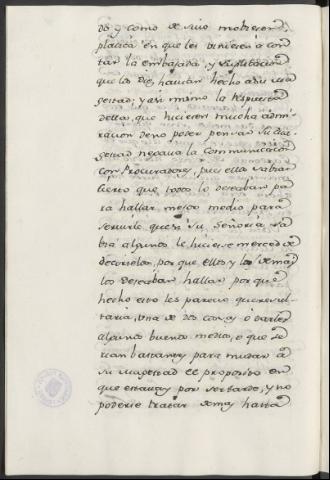 do y como de suio mobieron
platica en que les viniere a con
tar la embajada, y suplicacion
que los Dhos, hauian hecho a su ma
gestad; y asi mismo la respuesta
della, que hicieron mucha admi
racion de no poder pensar su Ma
gestad negava la comunicacion
con Procuradores, pues ella sabia
cierto que todos lo deseaban pa
ra hallar mejor medio para
servirle que si su, Señoria, sa
bia algunos le hiciese merced de
decirselos, por que ellos y los demas
los deseaban hallar, por que
hecho esto les parecia que resul
taria, una de dos cosas o darles
algunos buenos medios, o que se
rian bastantes para mudar a
su magestad el proposito en
que estauan por ser tarde, y no
poderse tratar de mas hasta